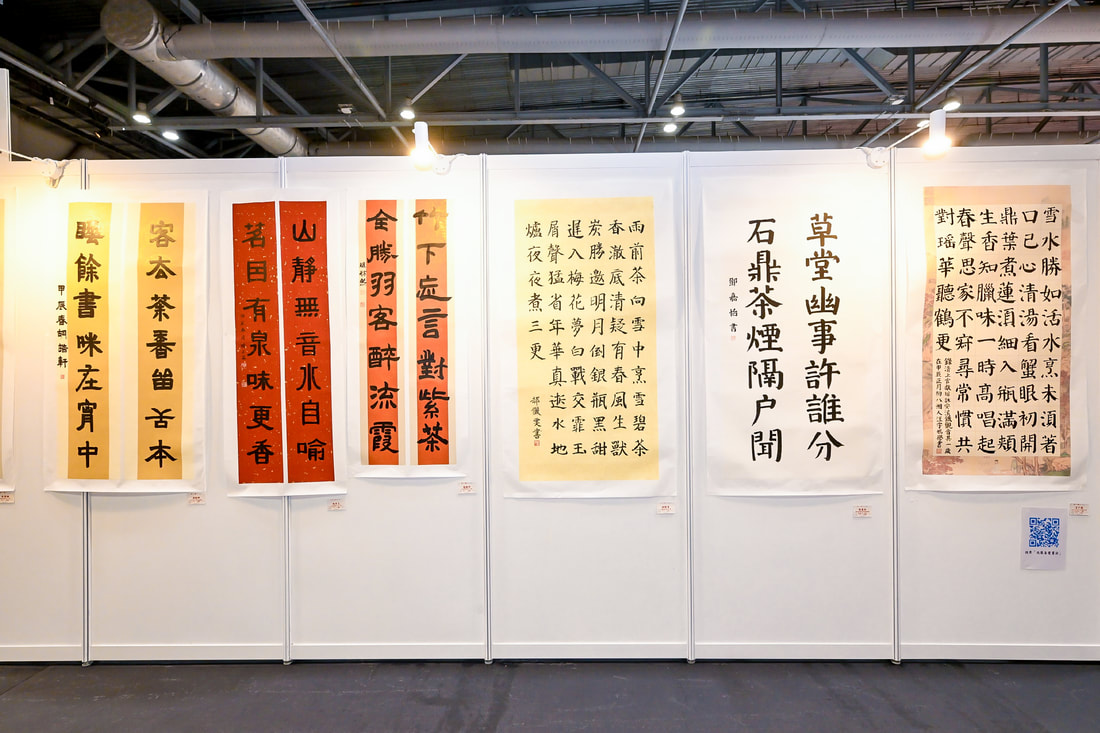 雪水勝如活水烹未湏著
口已心清湯看蟹眼初開
鼎葉煮蓮湏細入瓶滿頰
生香知臘味一時高唱起
春聲思家不寐尋常慣共
對瑤華聽鶴更
草堂幽事許誰分
石鼎茶煙隔户聞
鄧嘉怡書
雨前茶向雪中烹雪碧茶
香澈底清疑有春風生獸
炭勝邀明月倒銀瓶黑甜
遲入梅花夢白戰交霏玉
屑聲猛省年華真逝水地
爐夜夜煮三更
竹下忘言對紫茶
全勝羽客醉流霞
山靜無音水自喻
茗因有泉味更香
客去茶香留舌本
睡餘書味在胷中
甲辰春胡浩軒